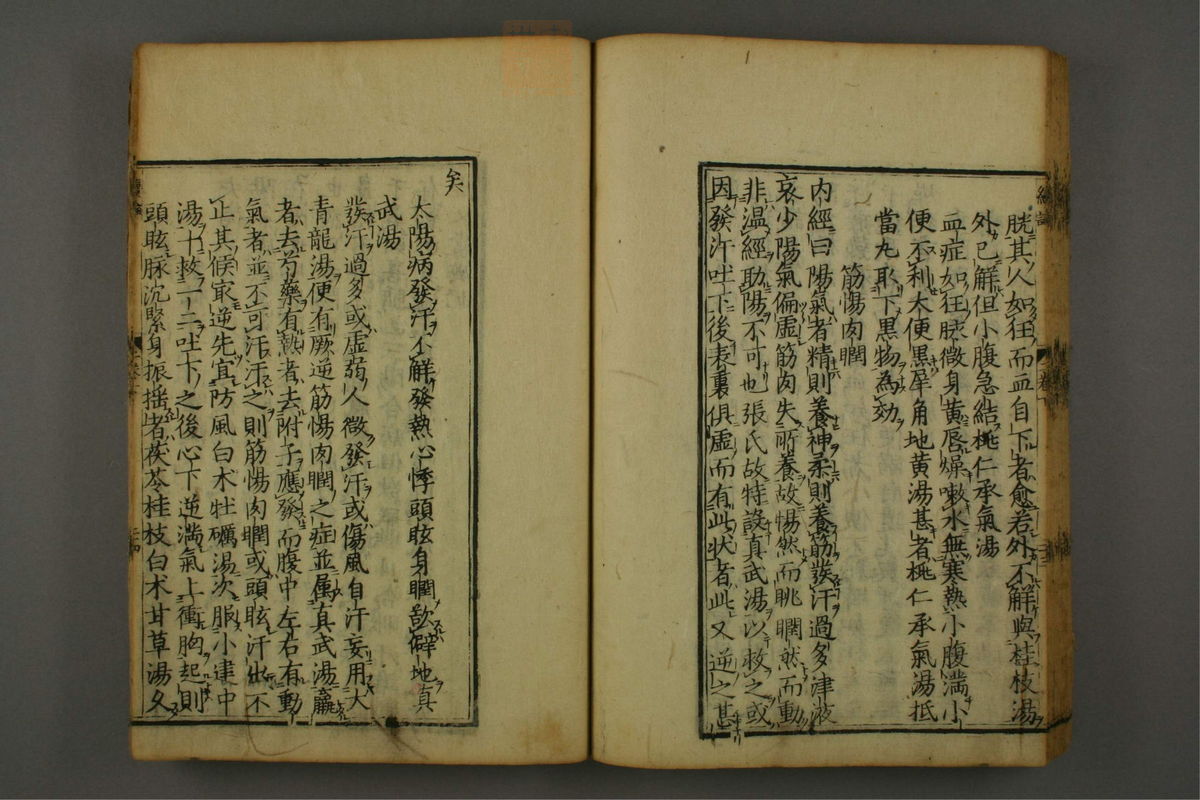 胱其人如狂而血自下者愈若外不解與桂枝湯
外已解但小腹急結桃仁承氣湯
血症如狂脉微身黄唇燥嗽水無寒熱小腹満小
便不利大便黒犀角地黄湯甚者桃仁承氣湯抵
當丸取下黒物為効
筋惕肉瞤
内經曰陽氣者精則養神柔則養筋發汗過多津液
衰少陽氣偏虚筋肉失所養故惕然而眺瞤然而動
非温經助陽不可也張氏故特設真武湯以救之或
因發汗吐下後表裏俱虚而有此状者此又逆之甚
矣
太陽病發汗不解發熱心悸頭眩身瞤欲僻地真
武湯
發汗過多或虚弱人微發汗或傷風自汗妄用大
青龍湯便有厥逆筋惕肉瞤之症並属真武湯羸
者去芍藥有熱者去附子應發而腹中左右有動
氣者並不可汗汗之則筋惕肉瞤或頭眩汗出不
正其候㝡逆先宜防風白朮牡礪湯次服小建中
湯十救一二吐下之後心下逆満氣上衝胸起則
頭眩脉沉緊身振揺者茯苓桂枝白朮甘草湯久